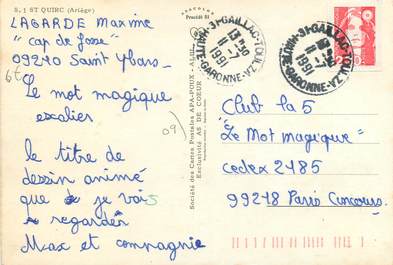 S. 1 ST QUIRC (Ariège)
LAGARDE Maxime
"cap de fosse"
09210 Saint Ybars
6€
Le mot magique
escalier
le titre de
dessin animé
que je vais
regarder
Max et compagnie
09
Précédé 81
Société des Cartes Postales APA-POUX - ALBI
Exclusivité AS DE COEUR
31-GAILLAC-TOULZA
13H30
11-7
1991
HAUTE-GARONNE
31-GAILLAC-TOULZA
1991
HAUTE-GARONNE
Club la 5
"Le Mot magique"
cedex 2485
99248 Paris Concours